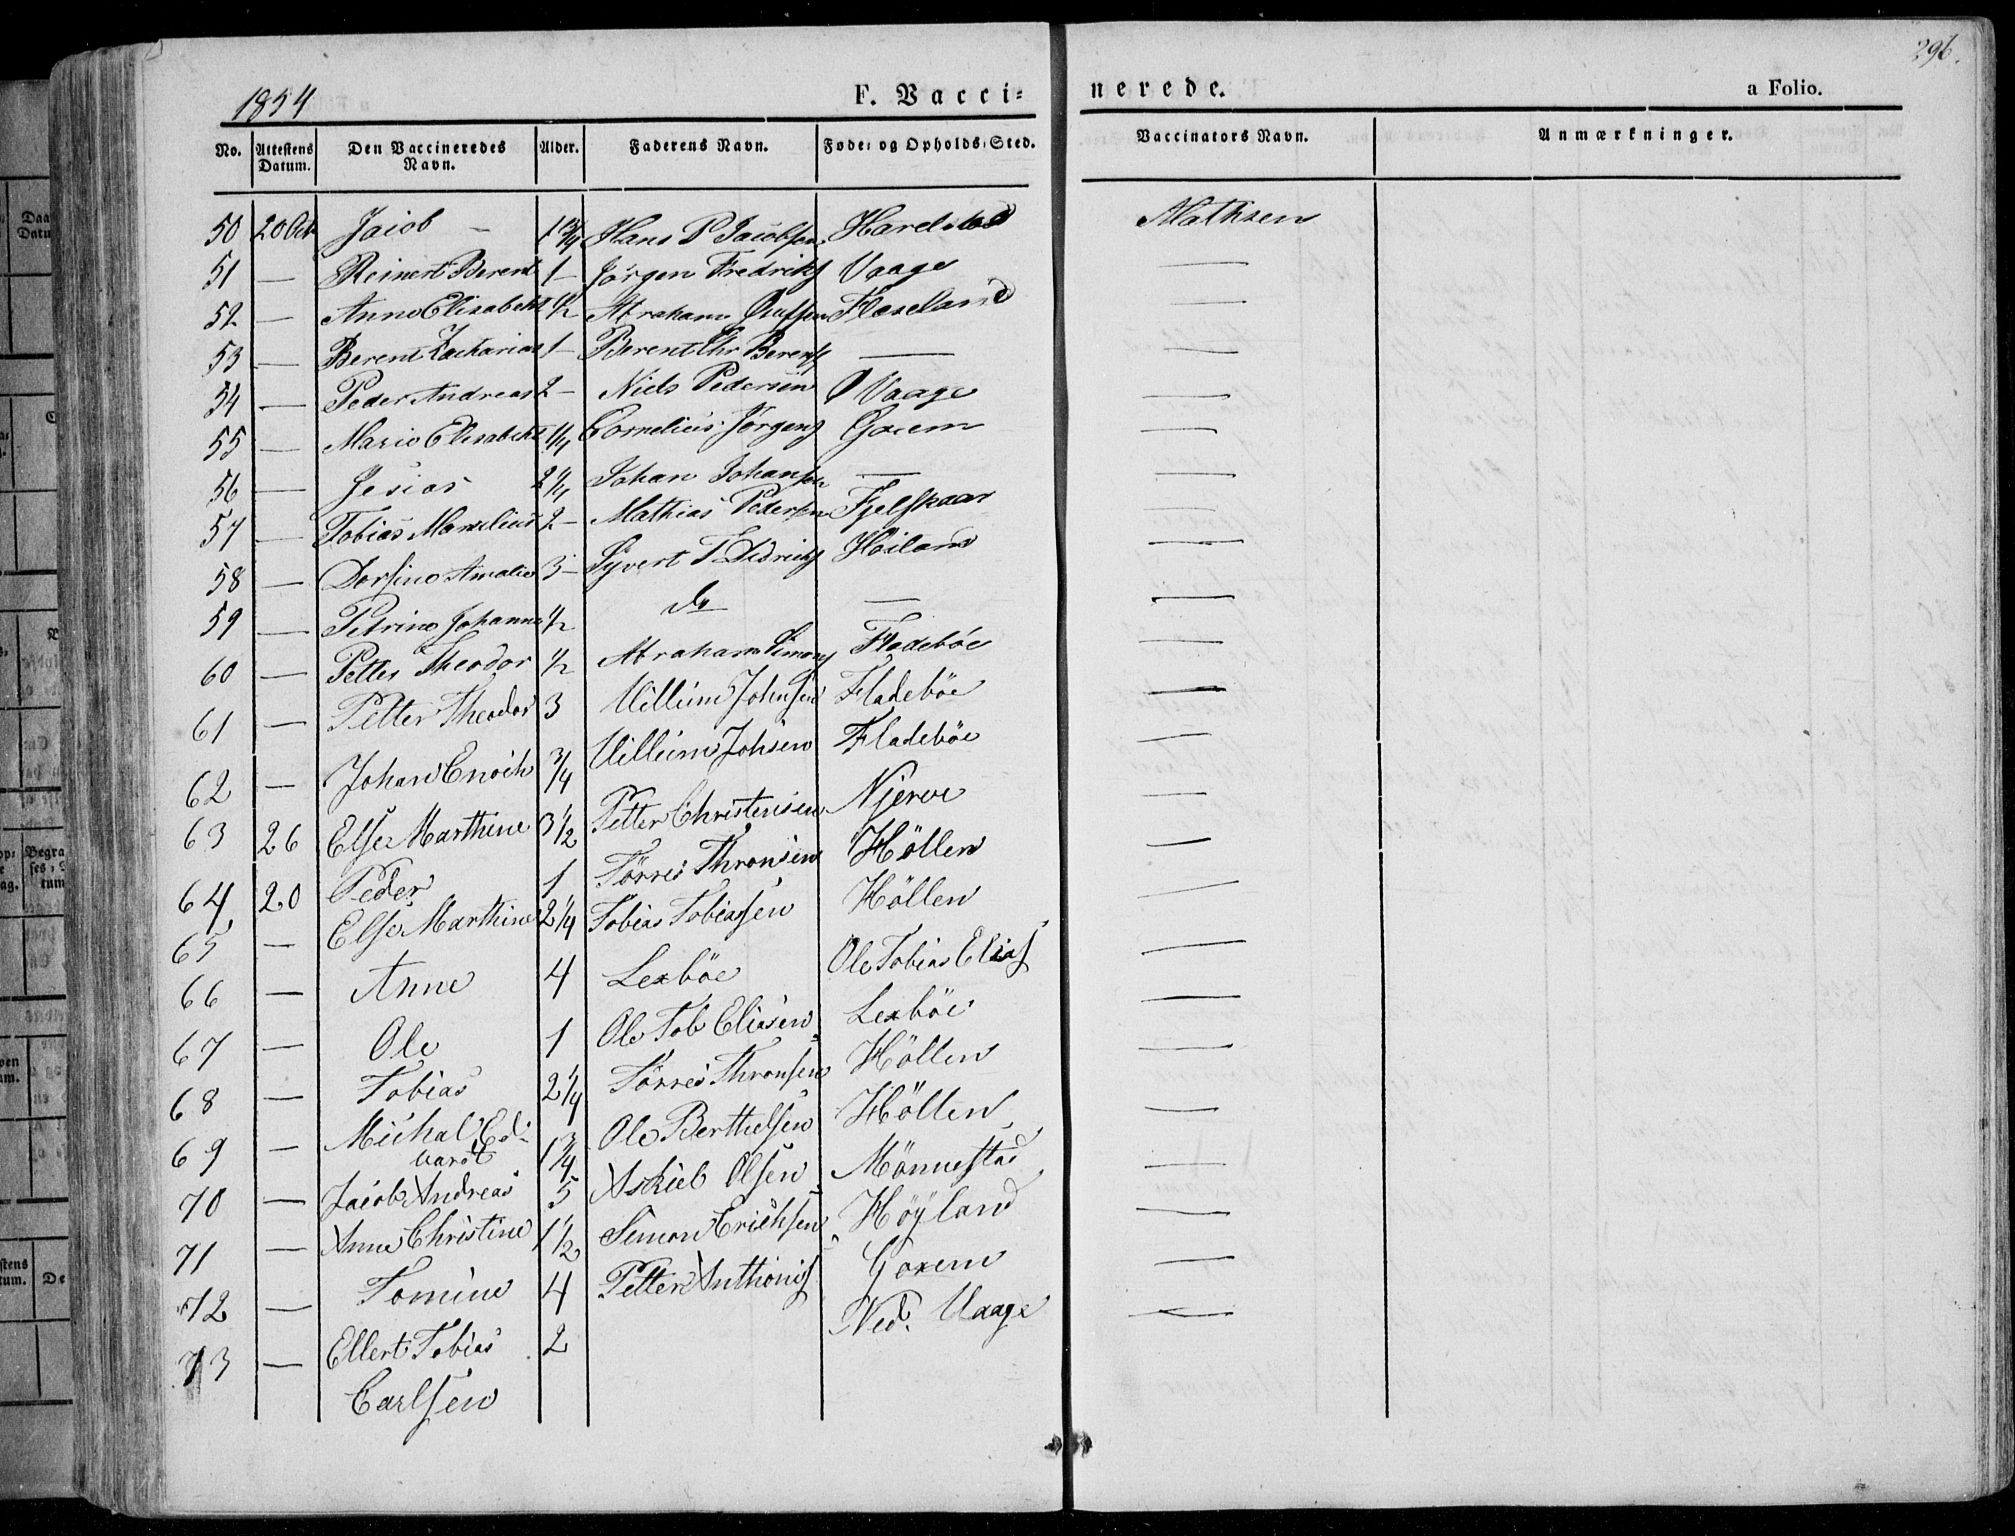 296.
1854 F. Vacci- nerede. a Folio.
No. Attestens Datum. Den Vaccineredes Navn. Alder. Faderens Navn. Føde- og Opholds-Sted. Vaccinators Navn. Anmærkninger.
50 20 Oct Jacob – 1 3/4 Hans P Jacobsen Harelstad Mathsen
51 — Reinert Berent 1 – Jörgen Fredriks Vaage —
52 — Anne Elisabeth 1/2 Abraham Fleseland —
53 — Berent Zacharias 1 – Berent Chr Berents — —
54 — Peder Andreas 2 – Niels Pedersen Ø Vaage —
55 — Marie Elisabeth 1/4 Cornelius Jörgens Goxem —
56 — Jesias 2 1/4 Johan Johansen — —
57 — Tobias Marselius 2 – Mathias Pedersen Fjelskaar —
58 — Dorsine Amalie 3 – Syvert T Didriks Høiland —
59 — Petrine Johanne 1/2 do — —
60 — Petter Theodor 1/2 Abraham Simons Fladebøe —
61 — Petter Theodor 3 Villum Johnsen Fladebøe —
62 — Johan Enoch 3/4 Villum Johsen Fladebøe —
63 26 Else Marthine 3 1/2 Petter Christensen Njerve —
64 20 Peder 1 Törres Thronsen Höllen —
65 — Else Marthine 2 1/4 Tobias Tobiassen Höllen —
66 — Anne 4 Lexböe Ole Tobias Elias —
67 — Ole 1 Ole Tob Eliasen Lexböe —
68 — Tobias 2 1/4 Törres Thronsen Höllen —
69 — Michal Ed- 1 3/4 Ole Berthelsen Höllen —
vardt
70 — Jacob Andreas 5 Askieb Olsen Mönnestad —
71 — Anne Christine 1 1/2 Simon Erichsen Høyland —
72 — Tomine 4 Petter Anthonis Goxem —
73 — Ellert Tobias 2 Ned. Vaage —
Carlsen